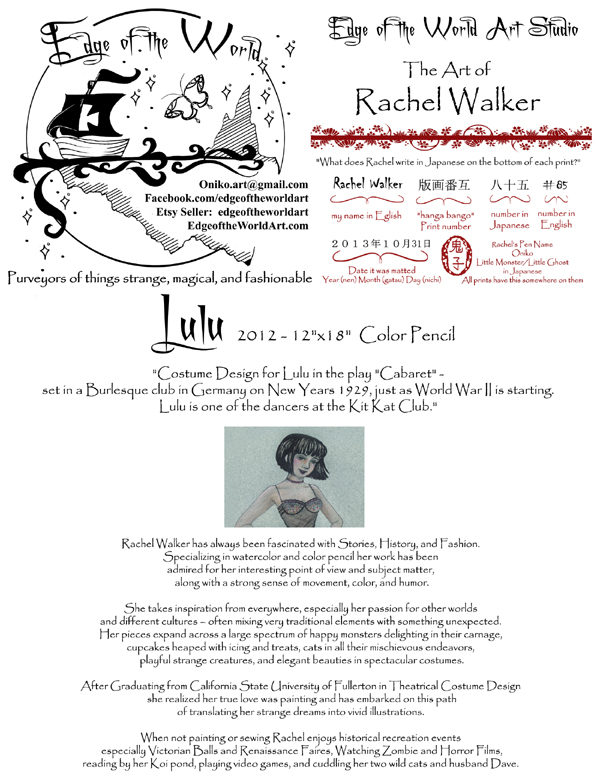 Edge of the World
Oniko.art@gmail.com
Facebook.com/edgeoftheworldart
Etsy Seller: edgeoftheworldart
EdgeoftheWorldArt.com
Purveyors of things strange, magical, and fashionable
Edge of the World Art Studio
The Art of
Rachel Walker
"What does Rachel write in Japanese on the bottom of each print?"
Rachel Walker 版画番互 八十五 # 85
my name in Eglish "hanga bango" Print number number in Japanese number in English
2013年10月31日
Date it was matted
Year (nen) Month (gatsu) Day (nichi)
鬼子
Rachel's Pen Name
Oniko
Little Monster/Little Ghost
in Japanese
All prints have this somewhere on them
Lulu 2012 - 12"x18" Color Pencil
"Costume Design for Lulu in the play "Cabaret" -
set in a Burlesque club in Germany on New Years 1929, just as World War II is starting.
Lulu is one of the dancers at the Kit Kat Club."
Rachel Walker has always been fascinated with Stories, History, and Fashion.
Specializing in watercolor and color pencil her work has been
admired for her interesting point of view and subject matter,
along with a strong sense of movement, color, and humor.
She takes inspiration from everywhere, especially her passion for other worlds
and different cultures – often mixing very traditional elements with something unexpected.
Her pieces expand across a large spectrum of happy monsters delighting in their carnage,
cupcakes heaped with icing and treats, cats in all their mischievous endeavors,
playful strange creatures, and elegant beauties in spectacular costumes.
After Graduating from California State University of Fullerton in Theatrical Costume Design
she realized her true love was painting and has embarked on this path
of translating her strange dreams into vivid illustrations.
When not painting or sewing Rachel enjoys historical recreation events
especially Victorian Balls and Renaissance Faires, Watching Zombie and Horror Films,
reading by her Koi pond, playing video games, and cuddling her two wild cats and husband Dave.